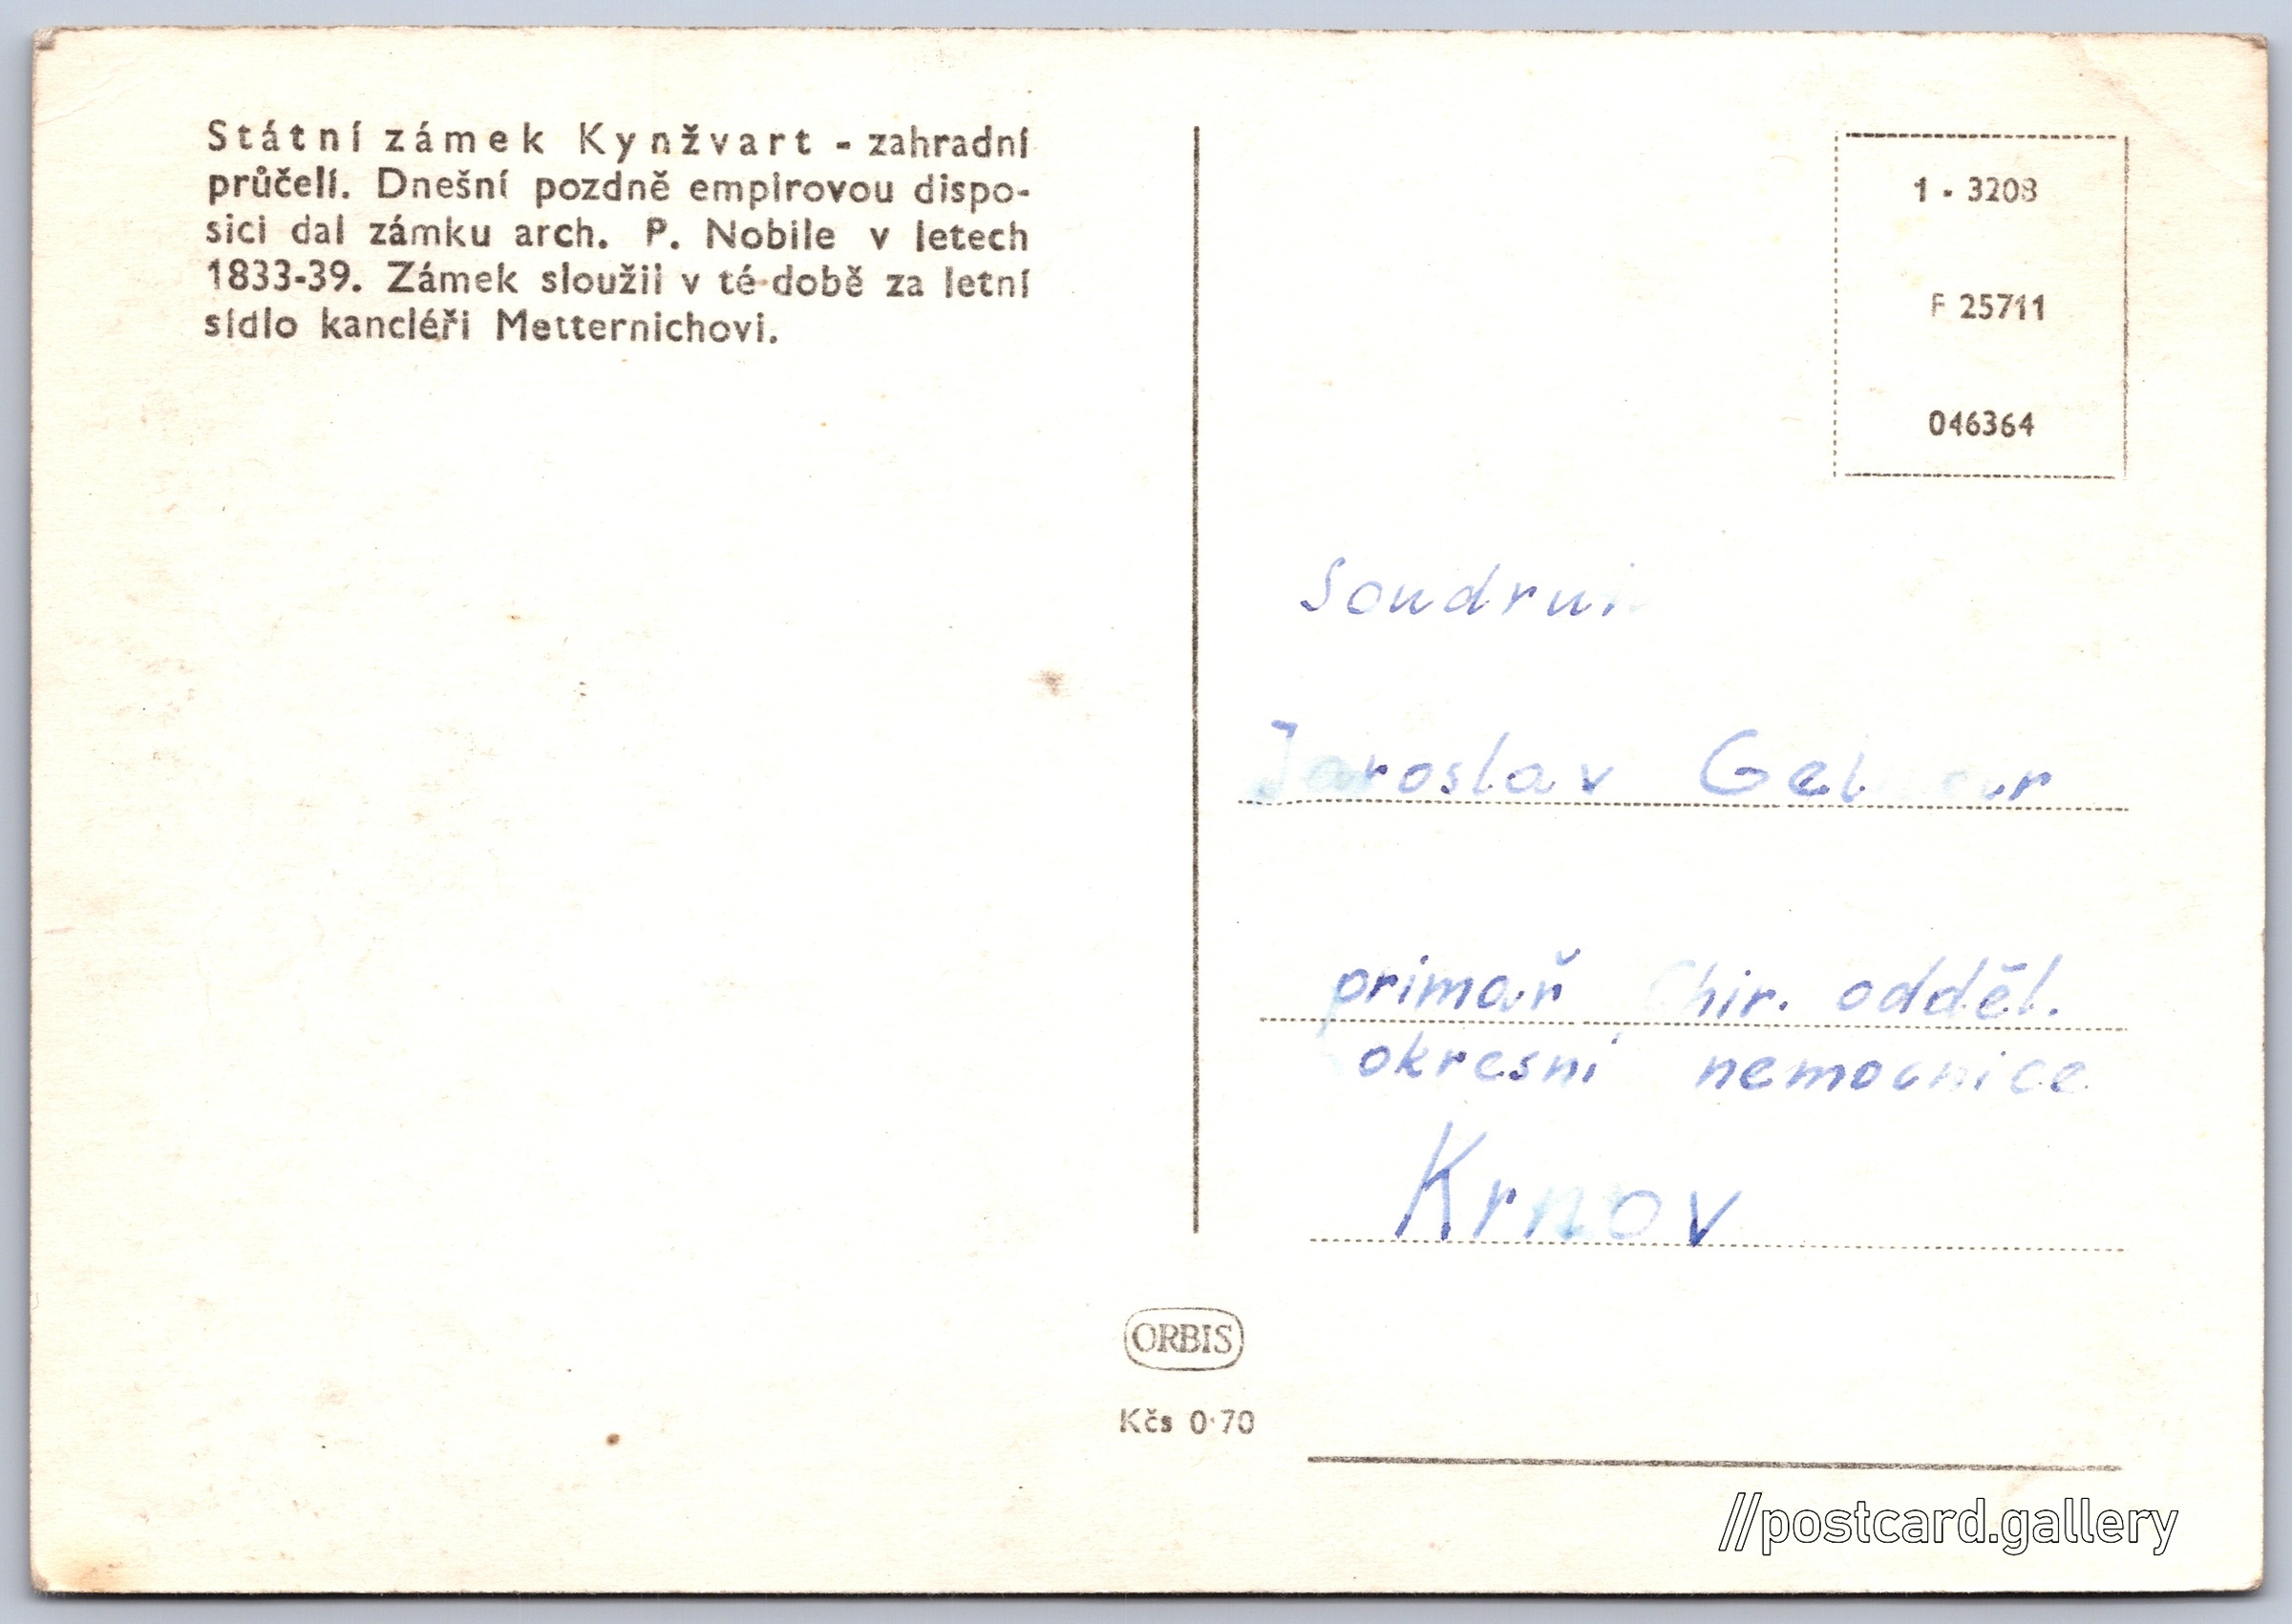 Státní zámek Kynžvart - zahradní
průčelí. Dnešní pozdně empirovou dispo-
sici dal zámku arch. P. Nobile v letech
1833-39. Zámek sloužil v té době za letní
sídlo kancléři Metternichovi.
1 - 3208
F 25711
046364
Jaroslav
primař Chir. odděl.
okresní nemocnice
Krnov
ORBIS
Kčs 0·70
//postcard.gallery